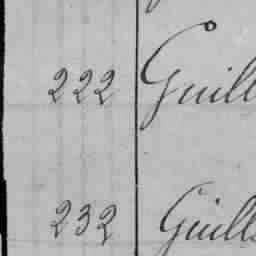 222 Guill
232 Guill